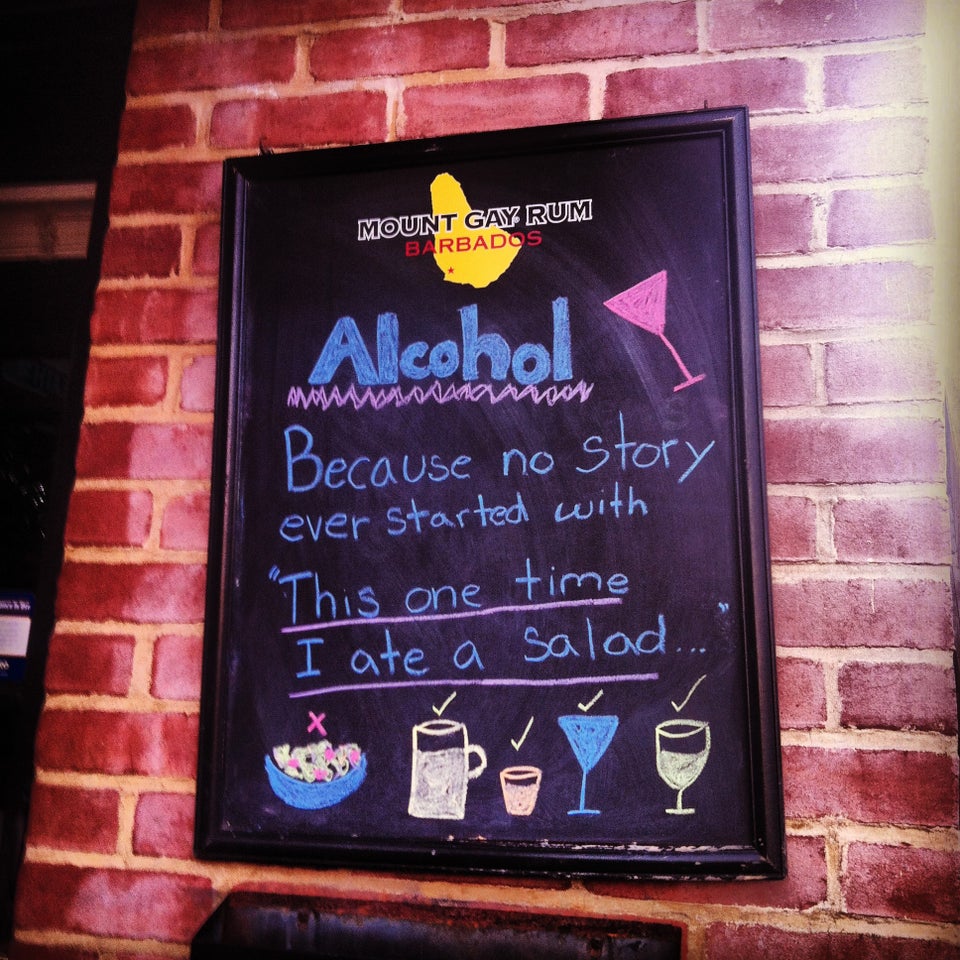 MOUNT GAY RUM
BARBADOS
Alcohol
Because no story
ever started with
"This one time
I ate a salad..."